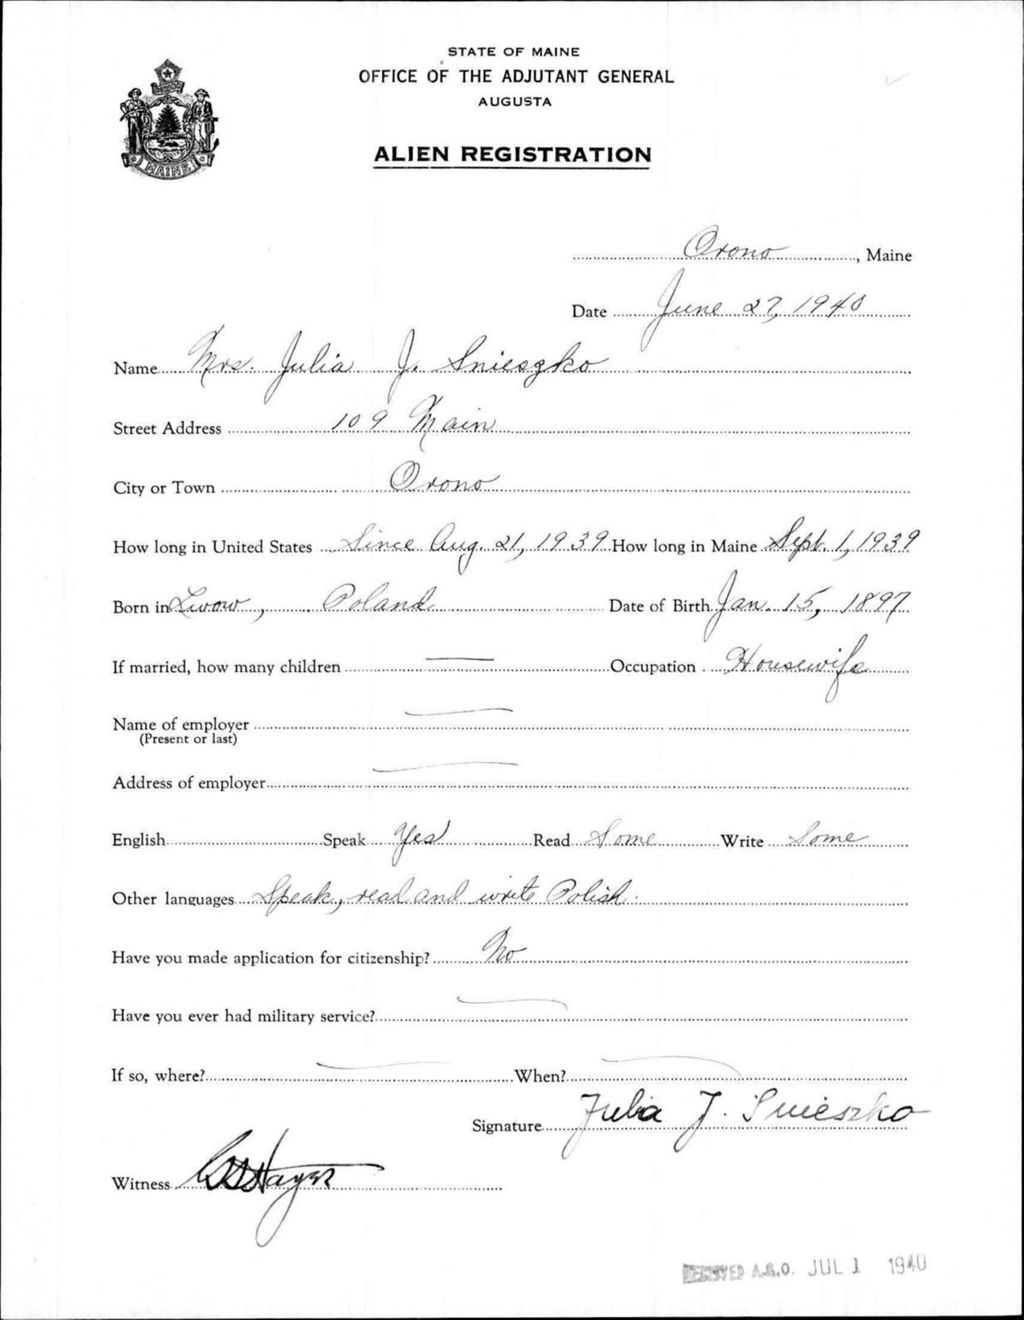 STATE OF MAINE
OFFICE OF THE ADJUTANT GENERAL
AUGUSTA
MAINE
ALIEN REGISTRATION
Orono, Maine
Date June 27, 1940
Name Mrs. Julia J. Snieszko
Street Address 109 Main
City or Town Orono
How long in United States Since Aug. 21, 1939 How long in Maine Sept. 1, 1939
Born in Lwow, Poland Date of Birth Jan. 15, 1897
If married, how many children — Occupation Housewife
Name of employer —
(Present or last)
Address of employer —
English Speak Yes Read Some Write Some
Other languages Speak, read and write Polish.
Have you made application for citizenship? No
Have you ever had military service? —
If so, where? — When? —
Signature Julia J. Snieszko
Witness
RECEIVED A.G.O. JUL 1 1940